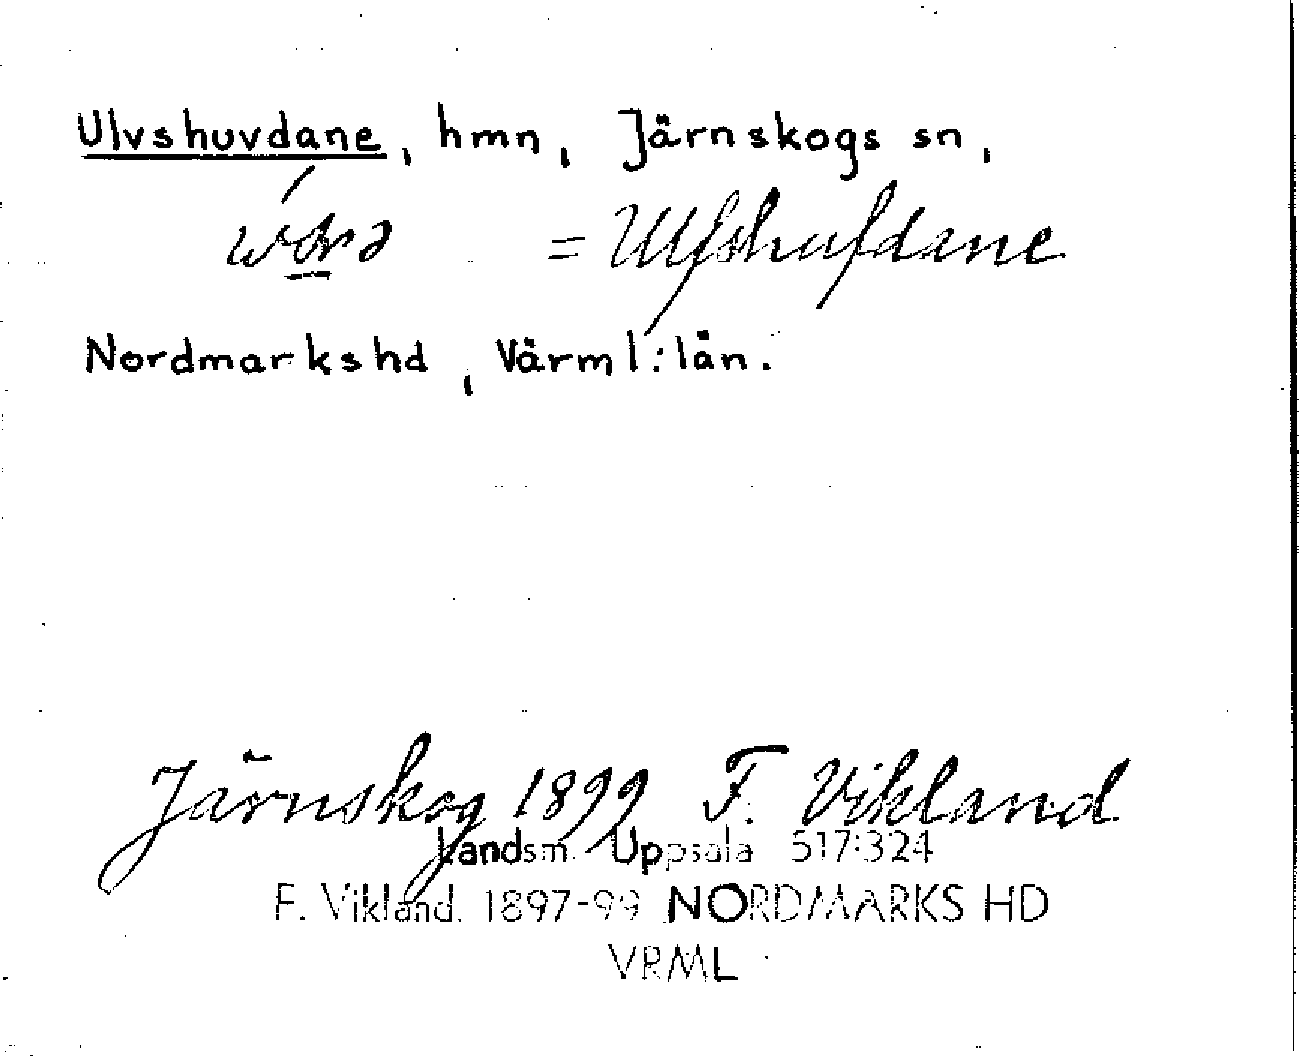 Ulvshuvdane, hmn, Järnskogs sn,
= Ulfshufdane
Nordmarks hd, Värml:län.
Järnskog 1899 F. Vikland
Landsm. Uppsala 517:324
F. Vikland. 1897-99 NORDMARKS HD
VRML